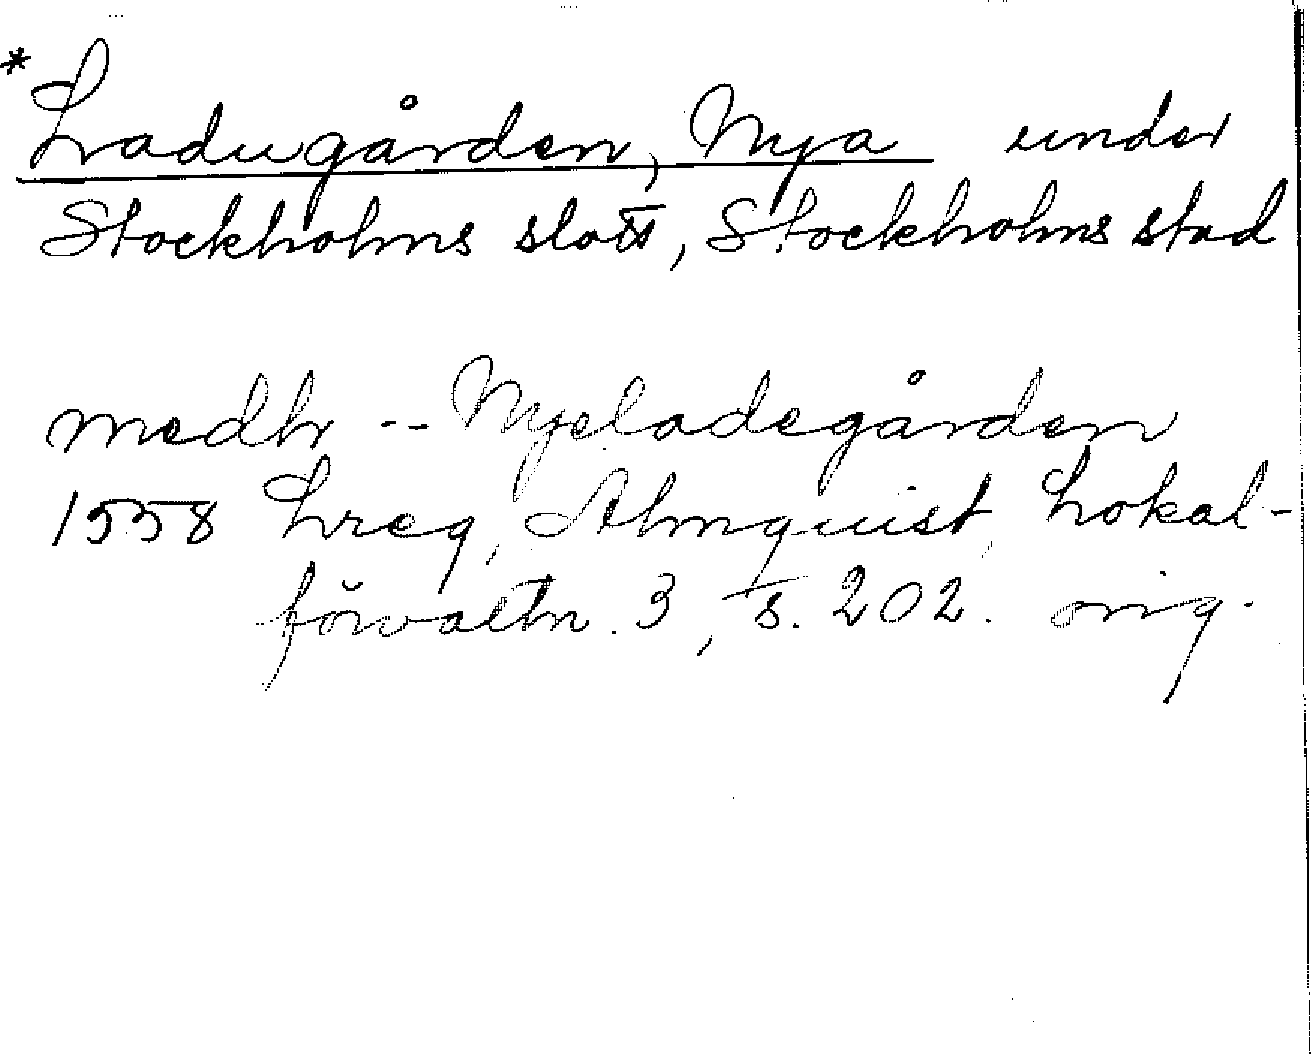 *
Ladugården, Nya under
Stockholms slott, Stockholms stad
medh -- Nyeladegården
1558 Lreg, Almquist, Lokal-
förvaltn. 3, s. 202. orig.